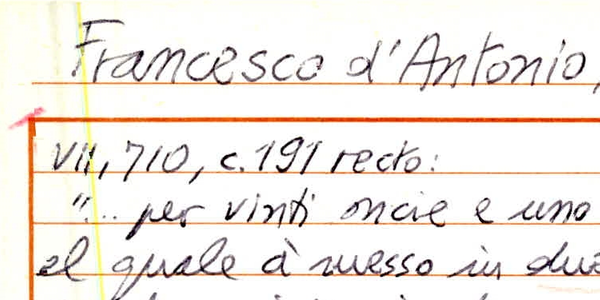 Francesco d'Antonio,
VII, 710, c. 191 recto:
"... per vinti oncie e uno
el quale à messo in due